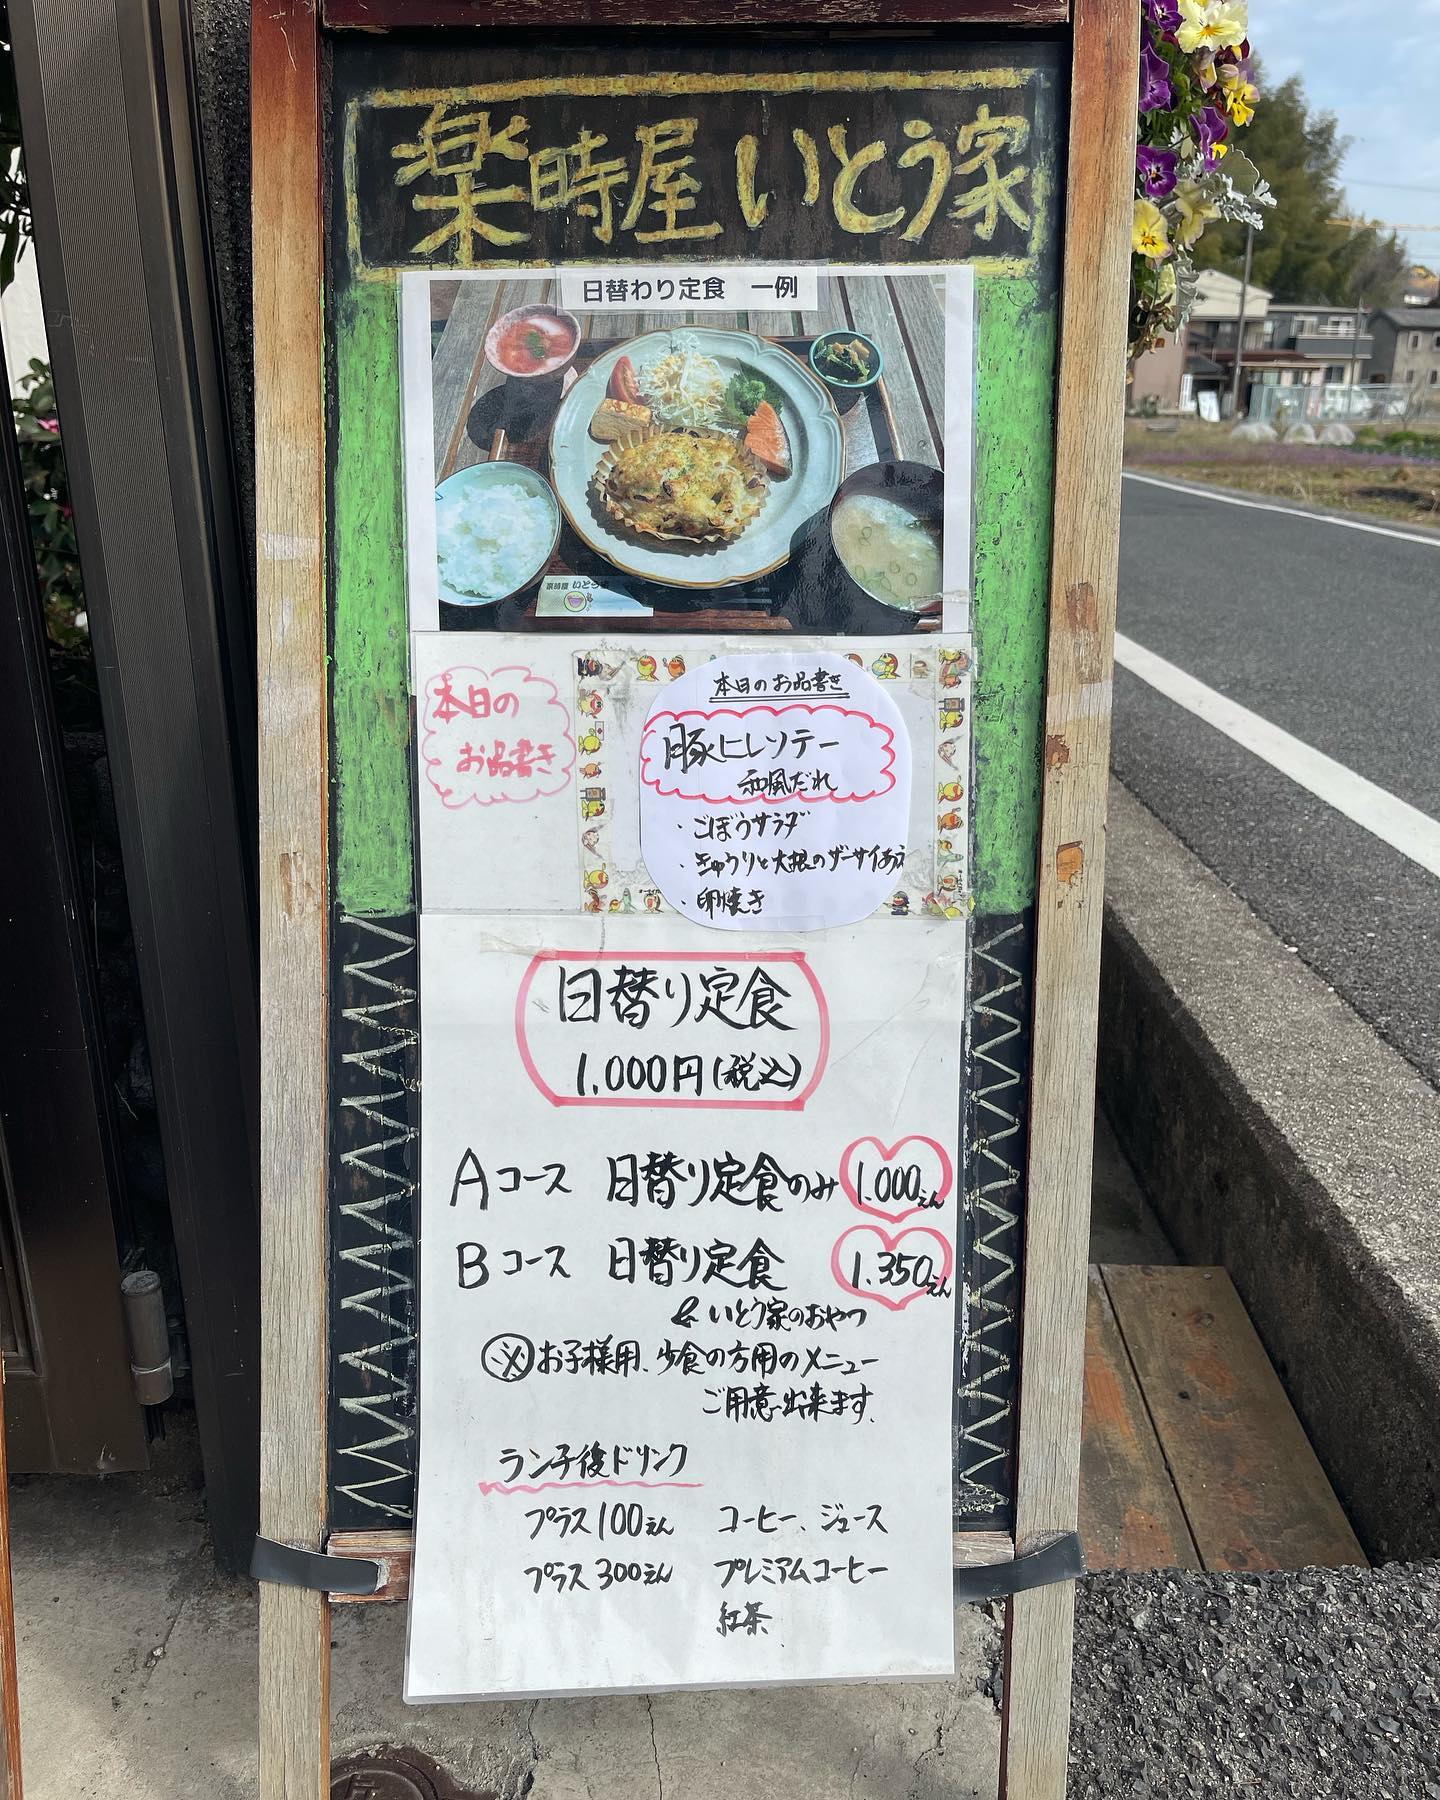 楽時屋 いとう家
日替わり定食　一例
楽時屋 いとう家
本日の
お品書き
本日のお品書き
豚ヒレソテー
和風だれ
・ごぼうサラダ
・きゅうりと大根のザーサイあえ
・卵焼き
日替り定食
1,000円(税込)
Aコース 日替り定食のみ 1,000えん
Bコース 日替り定食 1,350えん
& いとう家のおやつ
※お子様用、少食の方用のメニュー
ご用意出来ます。
ランチ後ドリンク
プラス100えん コーヒー、ジュース
プラス300えん プレミアムコーヒー
紅茶